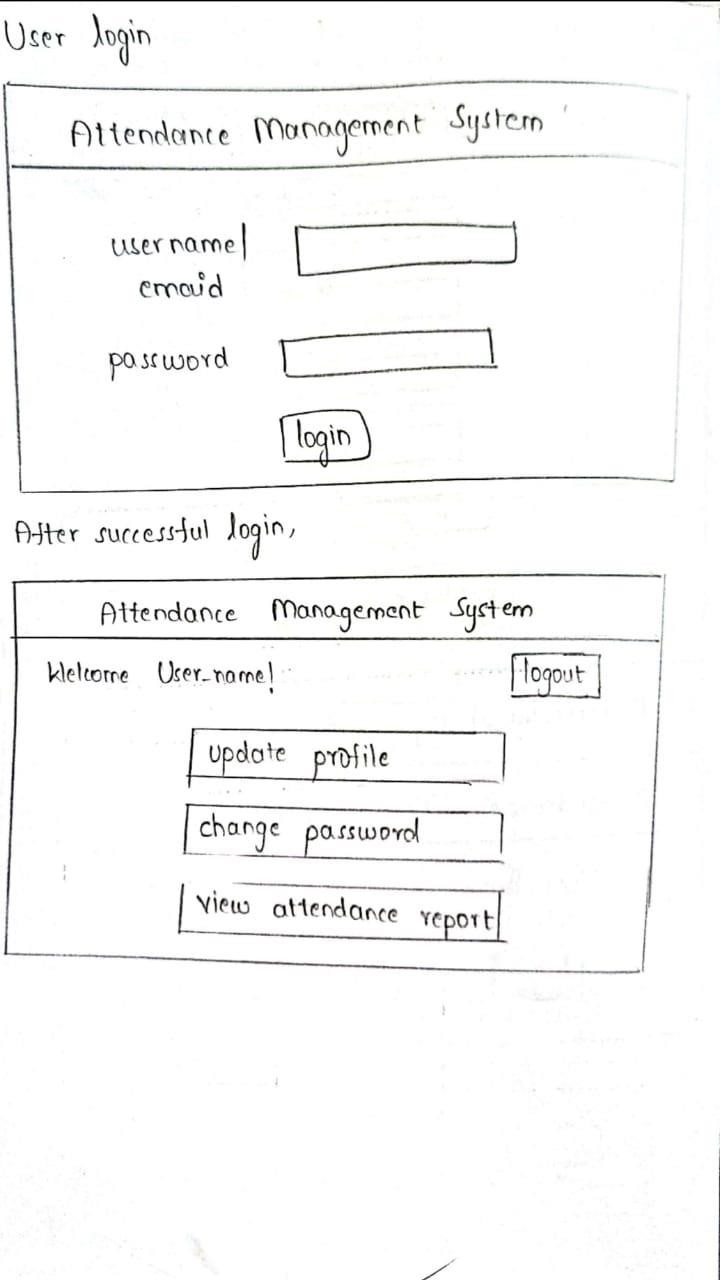 User login
Attendance Management System
username/
emaid
password
login
After successful login,
Attendance Management System
Welcome User_name!
logout
update profile
change password
view attendance report